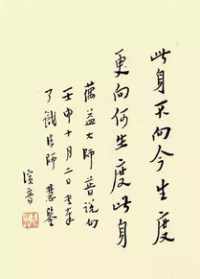 此身不向今生度
更向何生度此身
蕅益大师普说句
壬申十月二日书奉
了识法师慧鉴